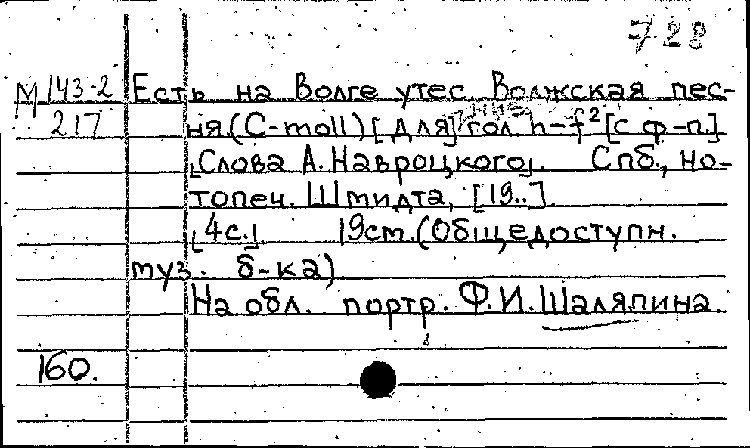 728
М 143-2 Есть на Волге утес. Волжская пес-
217 ня. (C-moll) [Для] гол. h-f² [с ф-п.]
[Слова А. Навроцкого]. Спб., Но-
топеч. Шмидта, [19..].
[4с.] 19см. (Общедоступн.
муз. б-ка)
На обл. портр. Ф.И. Шаляпина.
160.